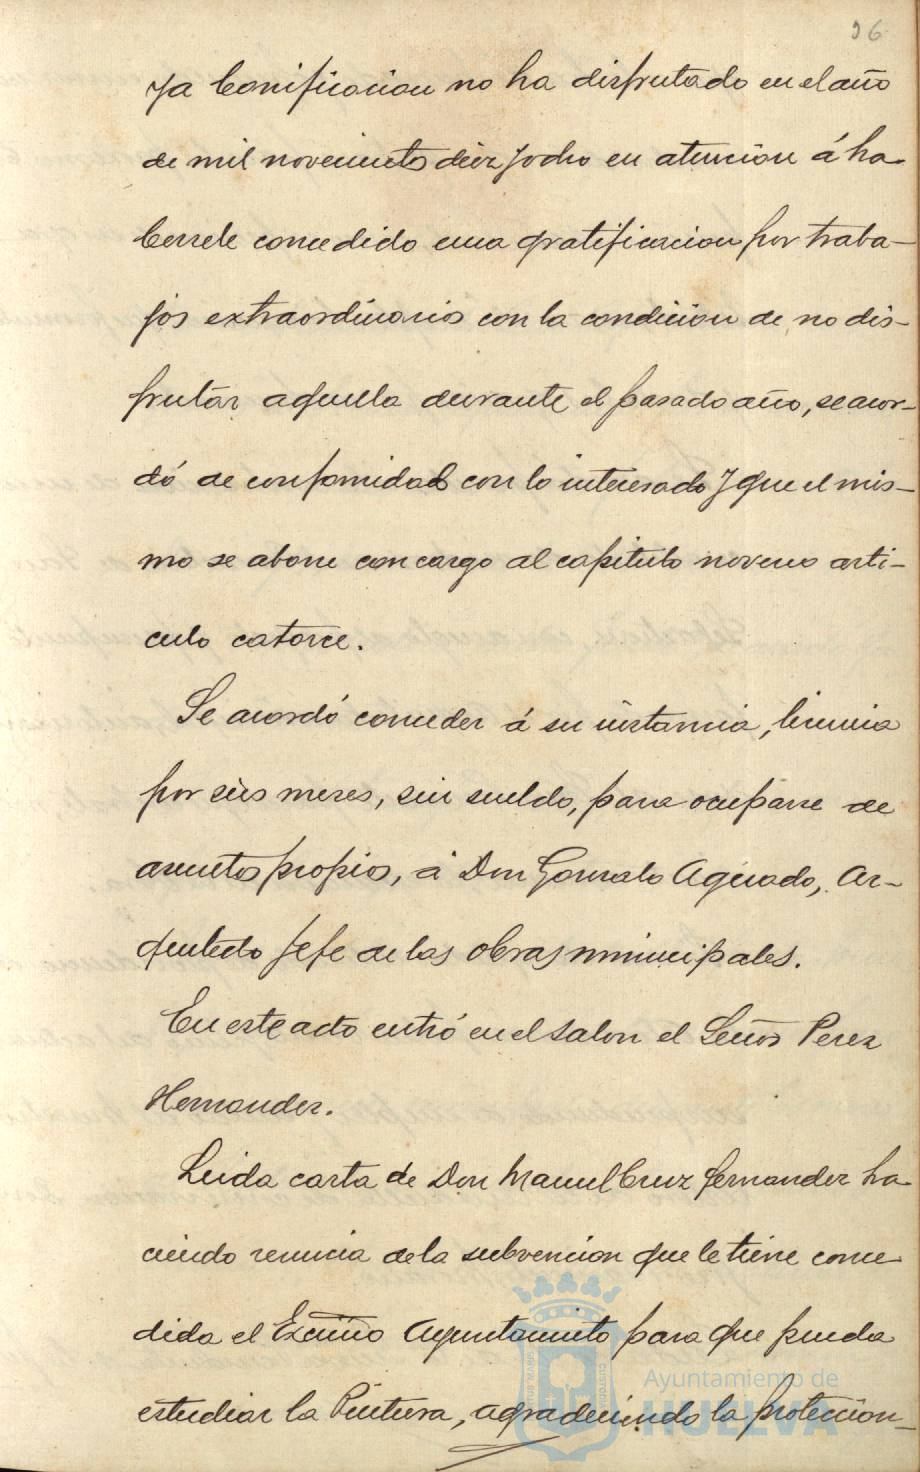 96
ya bonificacion no ha disfrutado en el año
de mil novecientos diez y ocho en atencion á ha-
bersele concedido una gratificacion por traba-
jos extraordinarios con la condicion de no dis-
frutar aquella durante el pasado año, se acor-
dó de conformidad con lo interesado y que el mis-
mo se abone con cargo al capitulo noveno arti-
culo catorce.
Se acordó conceder á su instancia, licencia
por seis meses, sin sueldo, para ocuparse de
asuntos propios, á Don Gonzalo Aguado, Ar-
quitecto Jefe de las obras municipales.
En este acto entró en el salon el Señor Perez
Hernandez.
Leida carta de Don Manuel Cruz Fernandez ha-
ciendo renuncia de la subvencion que le tiene conce-
dida el Excmo Ayuntamiento para que pueda
estudiar la Pintura, agradeciendo la proteccion
Ayuntamiento de
HUELVA